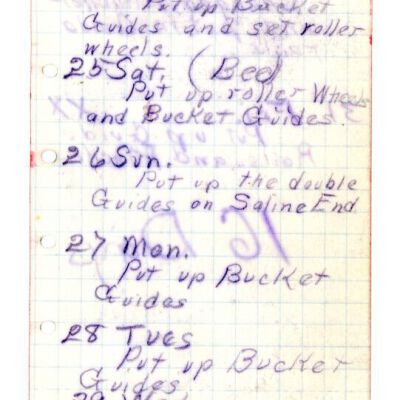 Put up Bucket
Guides and set roller
wheels.
25 Sat. (Bed)
Put up roller Wheels
and Bucket Guides.
26 Sun.
Put up the double
Guides on Saline End
27 Mon.
Put up Bucket
Guides
28 Tues
Put up Bucket
Guides.
29